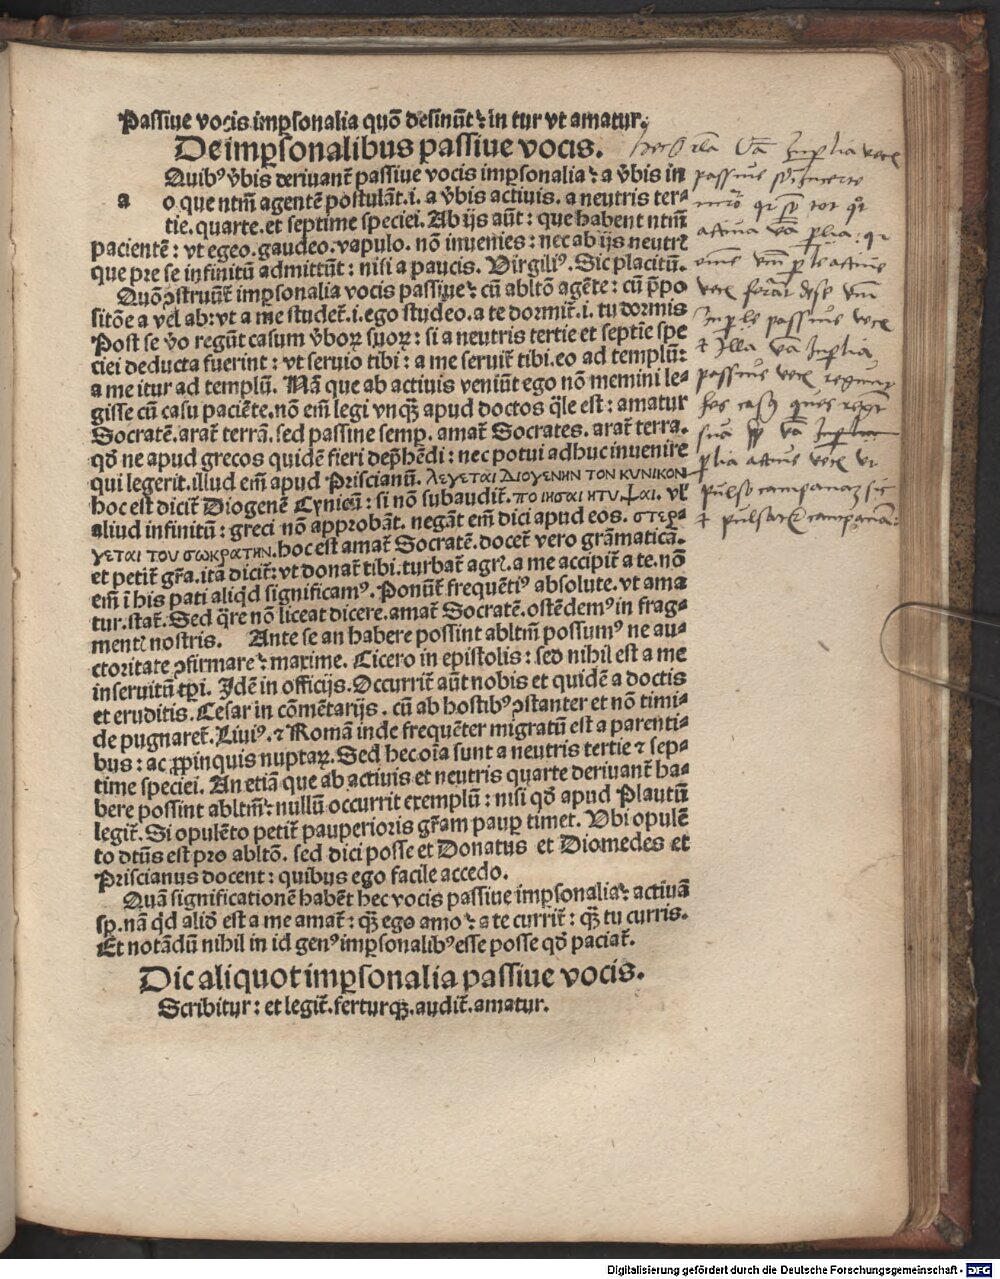 Passiue vocis imp̱sonalia quō desinūt: in tur vt amatur.
De imp̱sonalibus passiue vocis.
A quibꝰ v̄bis deriuant̄ passiue vocis imp̱sonalia: a v̄bis in
a o que ntm̄ agentē postulāt. i. a v̄bis actiuis. a neutris ter⸗
tie. quarte. et septime speciei. Ab ijs aūt: que habent ntm̄
pacientē: vt egeo. gaudeo. vapulo. nō inuenies: nec ab ijs neutrꝭ
que pre se infinitū admittūt: nisi a paucis. Virgiliꝰ. Sic placitū.
Quō ꝯstruūt̄ imp̱sonalia vocis passiue: cū abltō agēte: cū p̄po
sitōe a vel ab: vt a me studet̄. i. ego studeo. a te dormit̄. i. tu dormis
Post se v̄o regūt casum v̄boꝝ suoꝝ: si a neutris tertie et septīe spe
ciei deducta fuerint: vt seruio tibi: a me seruit̄ tibi. eo ad templū:
a me itur ad templū. Nā que ab actiuis veniūt ego nō memini le⸗
gisse cū casu paciēte. nō em̄ legi vnqꝫ apud doctos q̄le est: amatur
Socratē. arat̄ terrā. sed passine semp̱. amat̄ Socrates. arat̄ terra.
qd̄ ne apud grecos quidē fieri dep̄hēdi: nec potui adhuc inuenire
qui legerit. illud em̄ apud Priscianū. λεγεται Διογενην τον κυνικον
hoc est dicit̄ Diogenē Cynicū: si nō subaudit̄. ποιησαι η τυψαι. vl̄
aliud infinitū: greci nō approbāt. negāt em̄ dici apud eos. στερ⸗
γεται του σωκρατην. hoc est amat̄ Socratē. docet̄ vero grāmaticā.
et petit̄ gr̄a. ita dicit̄: vt donat̄ tibi. turbat̄ agrꝭ. a me accipit̄ a te. nō
em̄ ī his pati aliqd significamꝰ. Ponūt̄ frequētiꝰ absolute. vt ama
tur. stat̄. Sed q̄re nō liceat dicere. amat̄ Socratē. ostēdemꝰ in frag⸗
mentꝭ nostris. Ante se an habere possint abltm̄ possumꝰ ne au⸗
ctoritate ꝯfirmare: maxime. Cicero in epistolis: sed nihil est a me
inseruitū tp̱i. Idē in officijs. Occurrit̄ aūt nobis et quidē a doctis
et eruditis. Cesar in cōmētarijs. cū ab hostibꝰ ꝯstanter et nō timi⸗
de pugnaret̄. Liuiꝰ. ⁊ Romā inde frequēter migratū est a parenti⸗
bus: ac ꝓpinquis nuptaꝝ. Sed hec oīa sunt a neutris tertie ⁊ sep⸗
time speciei. An etiā que ab actiuis et neutris quarte deriuant̄ ha⸗
bere possint abltm̄: nullū occurrit exemplū: nisi qd̄ apud Plautū
legit̄. Si opulēto petit̄ pauperioris gr̄am paup̱ timet. Vbi opulē
to dtūs est pro abltō. sed dici posse et Donatus et Diomedes et
Priscianus docent: quibus ego facile accedo.
Quā significationē habēt hec vocis passiue imp̱sonalia: actiuā
sp̱. nā qd aliō est a me amat̄: qꝫ ego amo: a te currit̄: qꝫ tu curris.
Et notādū nihil in id genꝰ imp̱sonalibꝰ esse posse qd̄ paciat̄.
Dic aliquot imp̱sonalia passiue vocis.
Scribitur: et legit̄. ferturqꝫ. audit̄. amatur.
Digitalisierung gefördert durch die Deutsche Forschungsgemeinschaft - DFG